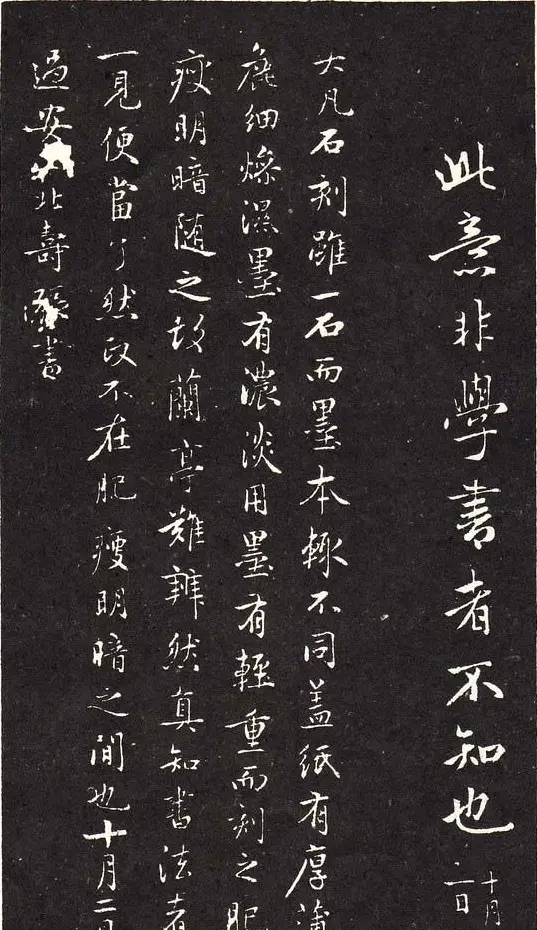 此意非學書者不知也
十月
二日
大凡石刻雖一石而墨本輒不同蓋紙有厚薄
麁細燥濕墨有濃淡用墨有輕重而刻之肥
瘦明暗随之故蘭亭難辨然真知書法者
一見便當了然政不在肥瘦明暗之間也十月二日
過安北壽張書